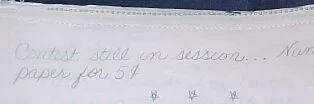 Contest still in session... Nam
paper for 5¢